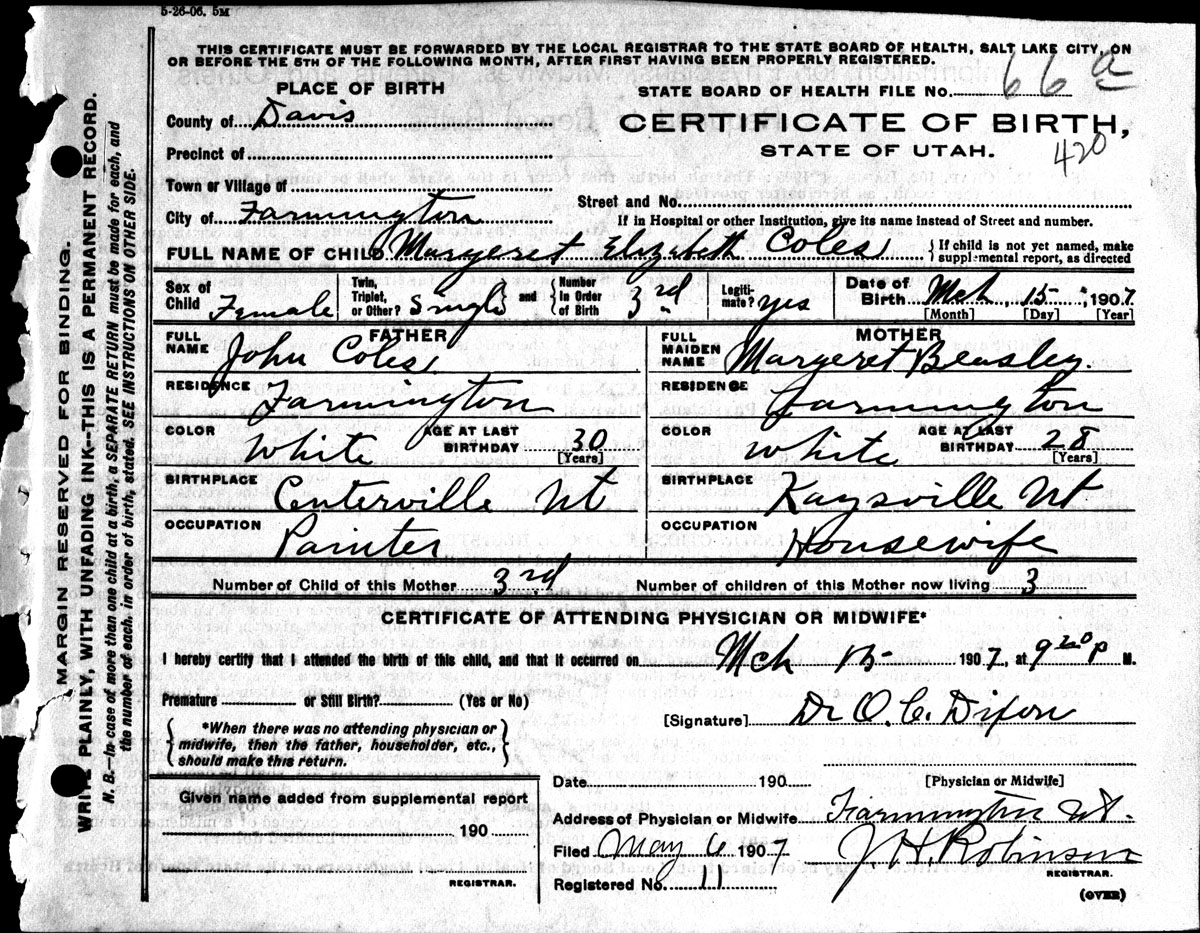 5-26-06. 5M
THIS CERTIFICATE MUST BE FORWARDED BY THE LOCAL REGISTRAR TO THE STATE BOARD OF HEALTH, SALT LAKE CITY, ON
OR BEFORE THE 5TH OF THE FOLLOWING MONTH, AFTER FIRST HAVING BEEN PROPERLY REGISTERED.
PLACE OF BIRTH
STATE BOARD OF HEALTH FILE NO. 66 a
County of Davis
CERTIFICATE OF BIRTH,
STATE OF UTAH.
420
Precinct of
Town or Village of
Street and No.
City of Farmington
If in Hospital or other Institution, give its name instead of Street and number.
FULL NAME OF CHILD Margeret Elizabeth Coles
{ If child is not yet named, make
supplemental report, as directed
Sex of Child Female
Twin, Triplet, or Other? Single } and { Number In Order of Birth 3rd
Legitimate? yes
Date of Birth Mch 15, 1907
[Month] [Day] [Year]
FATHER
FULL NAME John Coles
RESIDENCE Farmington
COLOR White AGE AT LAST BIRTHDAY 30
[Years]
BIRTHPLACE Centerville Ut
OCCUPATION Painter
MOTHER
FULL MAIDEN NAME Margeret Beasley.
RESIDENCE Farmington
COLOR White AGE AT LAST BIRTHDAY 28
[Years]
BIRTHPLACE Kaysville Ut
OCCUPATION Housewife
Number of Child of this Mother 3rd Number of children of this Mother now living 3
CERTIFICATE OF ATTENDING PHYSICIAN OR MIDWIFE*
I hereby certify that I attended the birth of this child, and that it occurred on Mch 15 1907, at 9 20 P M.
Premature? or Still Birth? (Yes or No)
[Signature] Dr O. C. Dixon
{ *When there was no attending physician or
midwife, then the father, householder, etc.,
should make this return. }
Date 190 [Physician or Midwife]
Given name added from supplemental report
190
REGISTRAR.
Address of Physician or Midwife Farmington Ut.
Filed May 6 1907 J. H. Robinson
REGISTRAR.
Registered No. 11
(OVER)
MARGIN RESERVED FOR BINDING.
WRITE PLAINLY, WITH UNFADING INK--THIS IS A PERMANENT RECORD.
N. B.--In case of more than one child at a birth, a SEPARATE RETURN must be made for each, and
the number of each, in order of birth, stated. SEE INSTRUCTIONS ON OTHER SIDE.